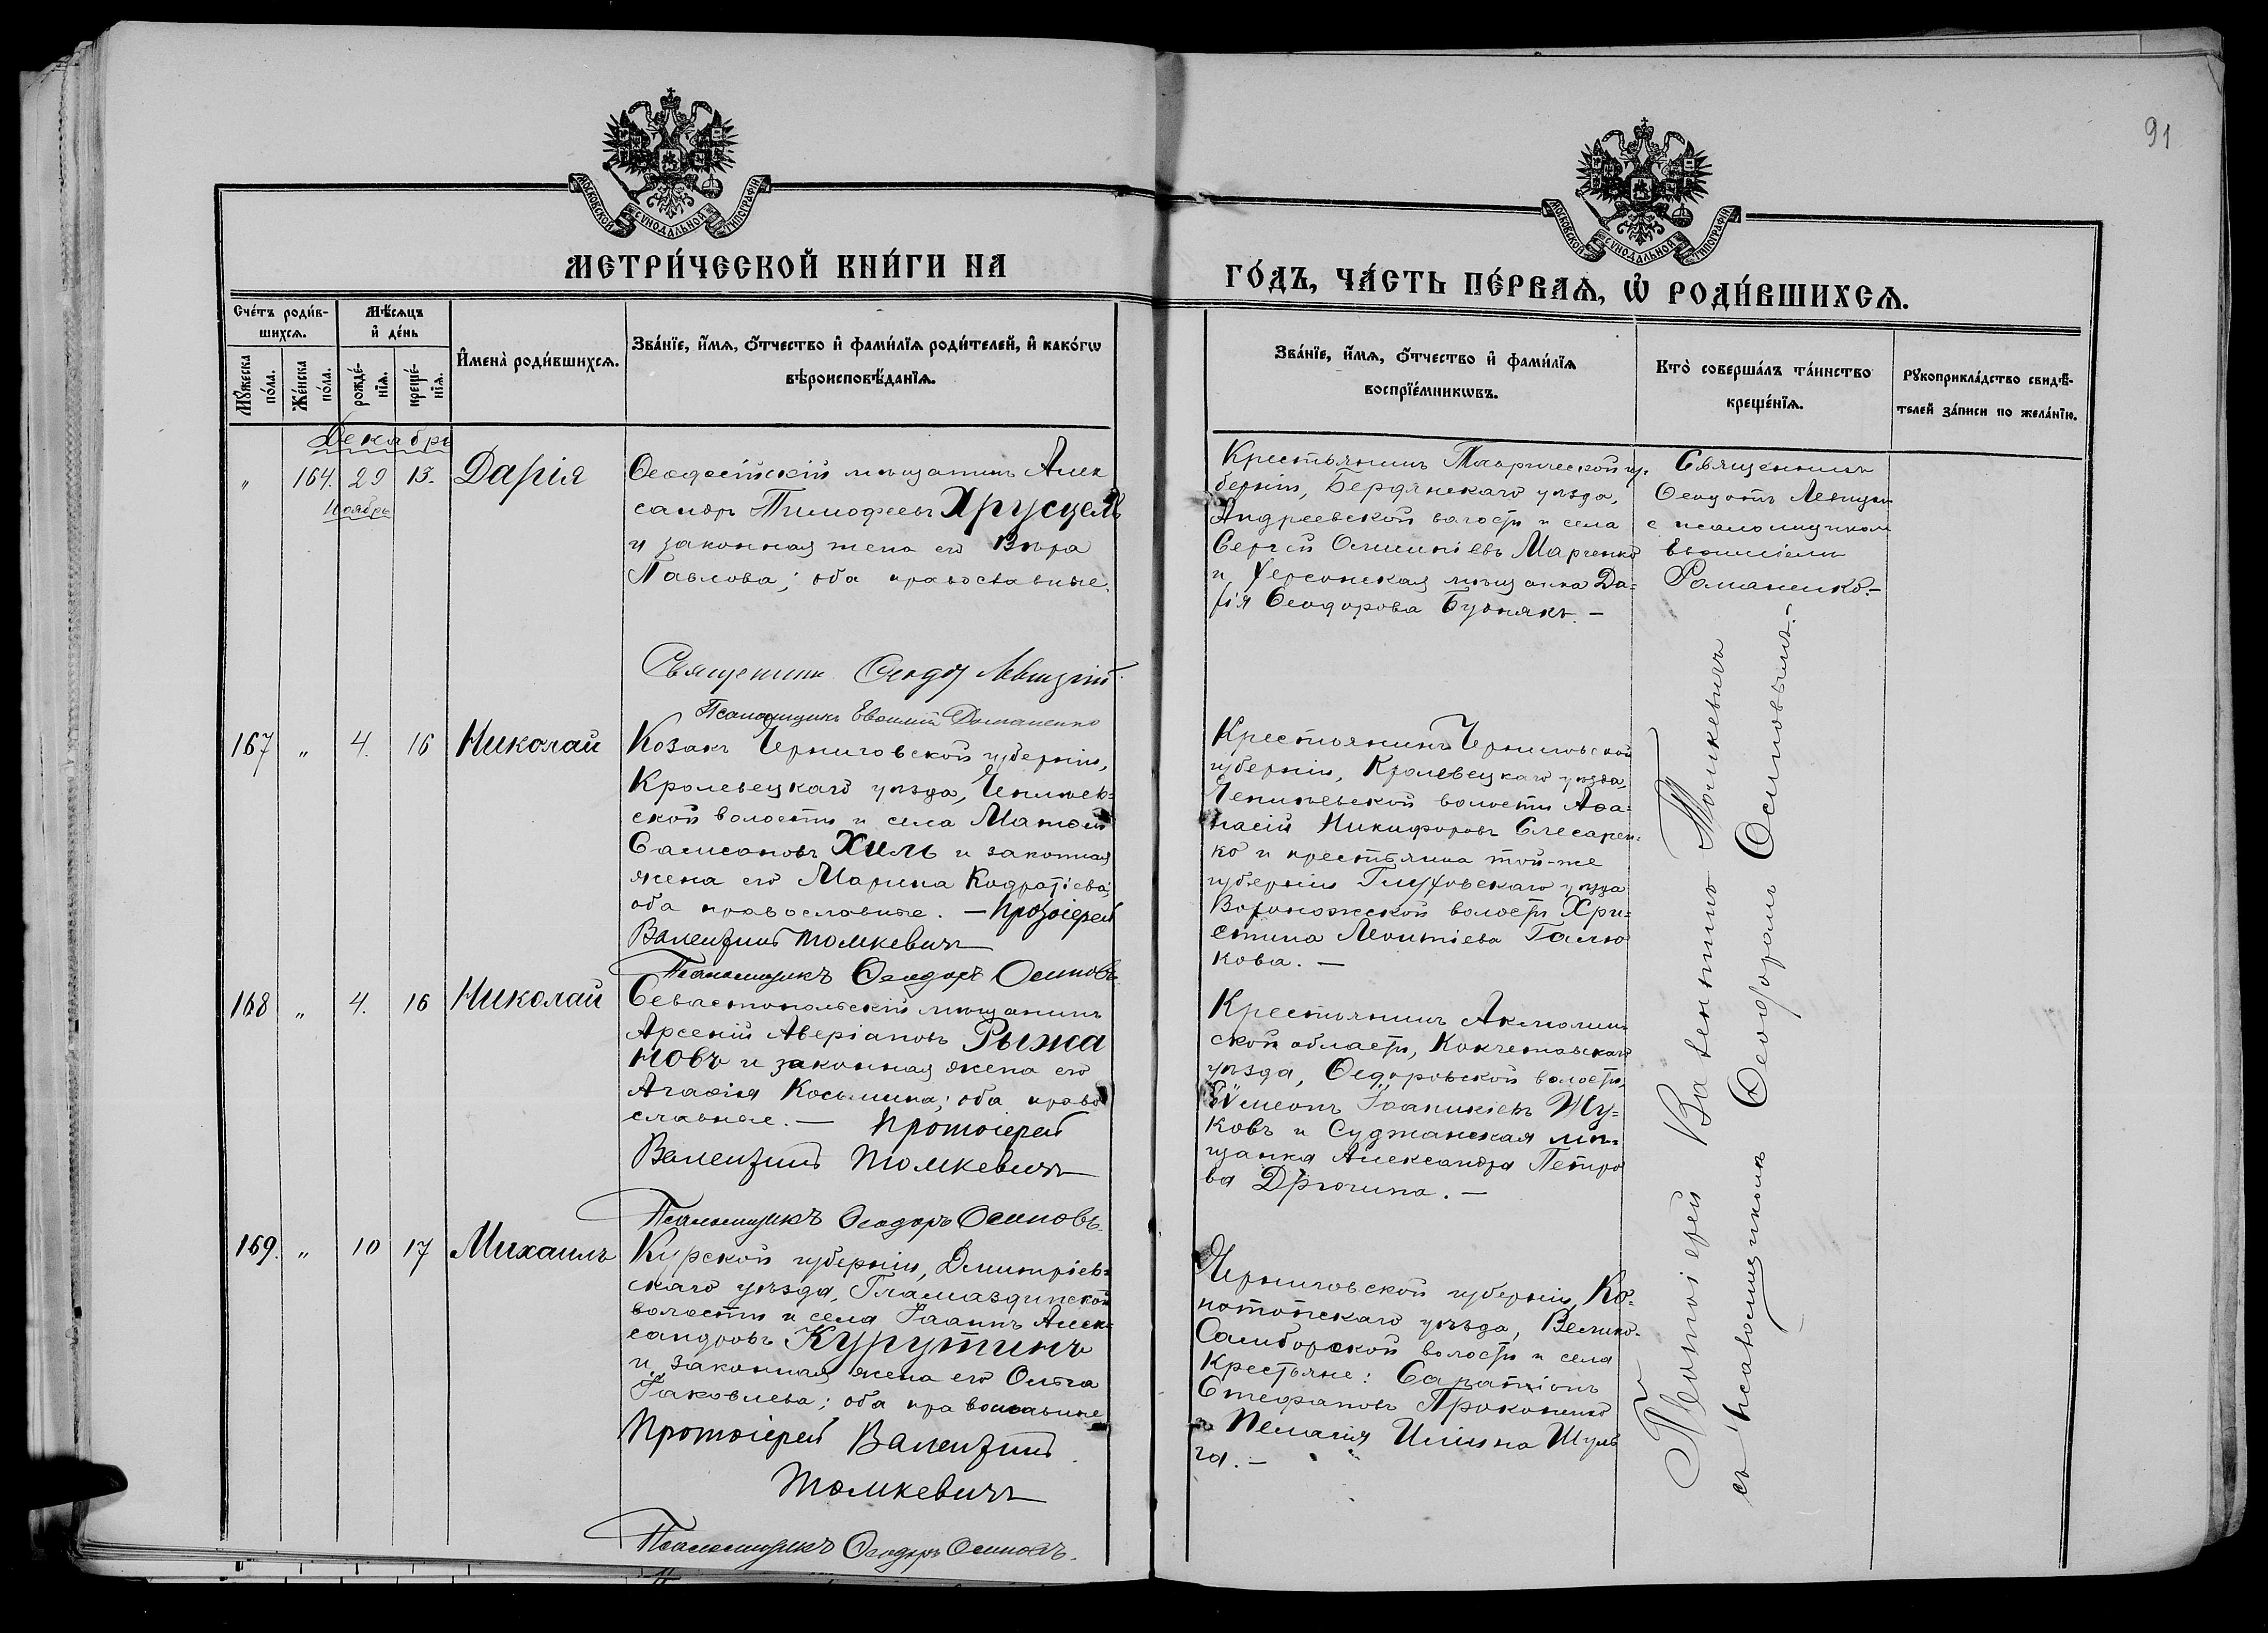 91
МОСКОВСКОЙ СѴНОДАЛЬНОЙ ТИПОГРАФІИ
МОСКОВСКОЙ СѴНОДАЛЬНОЙ ТИПОГРАФІИ
МЕТРИ́ЧЕСКОЙ КНИ́ГИ НА
ГО́ДЪ, ЧА́СТЬ ПЕ́РВАѦ, Ѡ҆ РОДИ́ВШИХСѦ.
Сче́тъ роди́в-
шихсѧ.
Мꙋ́жеска
по́ла.
Же́нска
по́ла.
Мѣ́сѧцъ
и҆ де́нь
рожде́-
нїѧ.
креще́-
нїѧ.
И҆мена̀ роди́вшихсѧ.
Зва́нїе, и҆́мѧ, ѻ҆́тчество и҆ фами́лїѧ роди́телей, и҆ како́гѡ
вѣроисповѣ́данїѧ.
Зва́нїе, и҆́мѧ, ѻ҆́тчество и҆ фами́лїѧ
воспрїе́мникѡвъ.
Кто̀ соверша́лъ та́инство
креще́нїѧ.
Рꙋкоприкла́дство свидѣ́-
телей за́писи по жела́нїю.
Декабрь
" 164. 29 13. Дарія
Ноябрь
Ѳеодосійскій мѣщанинъ Алек
сандръ Тимоѳеевъ Хрусцель
и законная жена его Вѣра
Павлова; оба православные.
Священникъ Ѳеодотъ Левицкій
Псаломщикъ Евѳимій Романенко
Крестьянинъ Таврической гу-
берніи, Бердянскаго уѣзда,
Андреевской волости и села
Сергій Марченко
и Херсонская мѣщанка Да-
рія Ѳеодорова Бурнякъ. —
Священникъ
Ѳеодотъ Левицкій
с псаломщикомъ
Евѳиміемъ
Романенко. —
167 " 4. 16 Николай
Козакъ Черниговской губерніи,
Кролевецкаго уѣзда, Чепліев-
ской волости и села Матѳей
Самсоновъ Хиль и законная
жена его Марина Кодратіева;
оба православные. — Протоіерей
Валентинъ Томкевичъ
Псаломщикъ Ѳеодоръ Осиповъ.
Крестьянинъ Черниговской
губерніи, Кролевецкаго уѣзда,
Чепліевской волости Аѳа-
насій Никифоровъ Слесарен-
ко и крестьянка той-же
губерніи Глуховскаго уѣзда
Воронежской волости Хри-
стина Леонтіева Галю
кова. —
168 " 4. 16 Николай
Севастопольскій мѣщанинъ
Арсеній Аверіановъ Рыжа
новъ и законная жена его
Агаѳія Косьмина; оба право
славные. — Протоіерей
Валентинъ Томкевичъ
Псаломщикъ Ѳеодоръ Осиповъ.
Крестьянинъ Акмолин
ской области, Кокчетавскаго
уѣзда, Ѳедоровской волости,
Сѵмеонъ Іоанникіевъ Жу-
ковъ и Суджанская мѣ-
щанка Александра Петро
ва Дрючина. —
169. " 10 17 Михаилъ
Курской губерніи, Димитріев-
скаго уѣзда, Гламаздинской
волости и села Іоаннъ Алек-
сандровъ Курутинъ
и законная жена его Ольга
Іаковлева; оба православные
Протоіерей Валентинъ
Томкевичъ
Псаломщикъ Ѳеодоръ Осиповъ.
Черниговской губерніи, Ко-
нотопскаго уѣзда, Велико-
Самборской волости и села
Крестьяне: Сарапіонъ
Стефановъ Прокопенко
и Пелагія Иліина Шуль
га. —
Протоіерей Валентинъ Томкевичъ
съ псаломщикомъ Ѳеодоромъ Осиповымъ. —